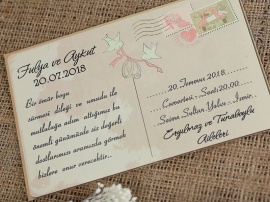 Fulya ve Aykut
20.07.2018
Bir ömür boyu
sürmesi dileği ve umudu ile
mutluluğa adım attığımız bu
önemli günümüzde siz değerli
dostlarımızı aramızda görmek
bizlere onur verecektir...
20. Temmuz 2018
Cumartesi - Saat: 20.00
Sema Sultan Yalısı - İzmir
Eryılmaz ve Tunabaylu
Aileleri